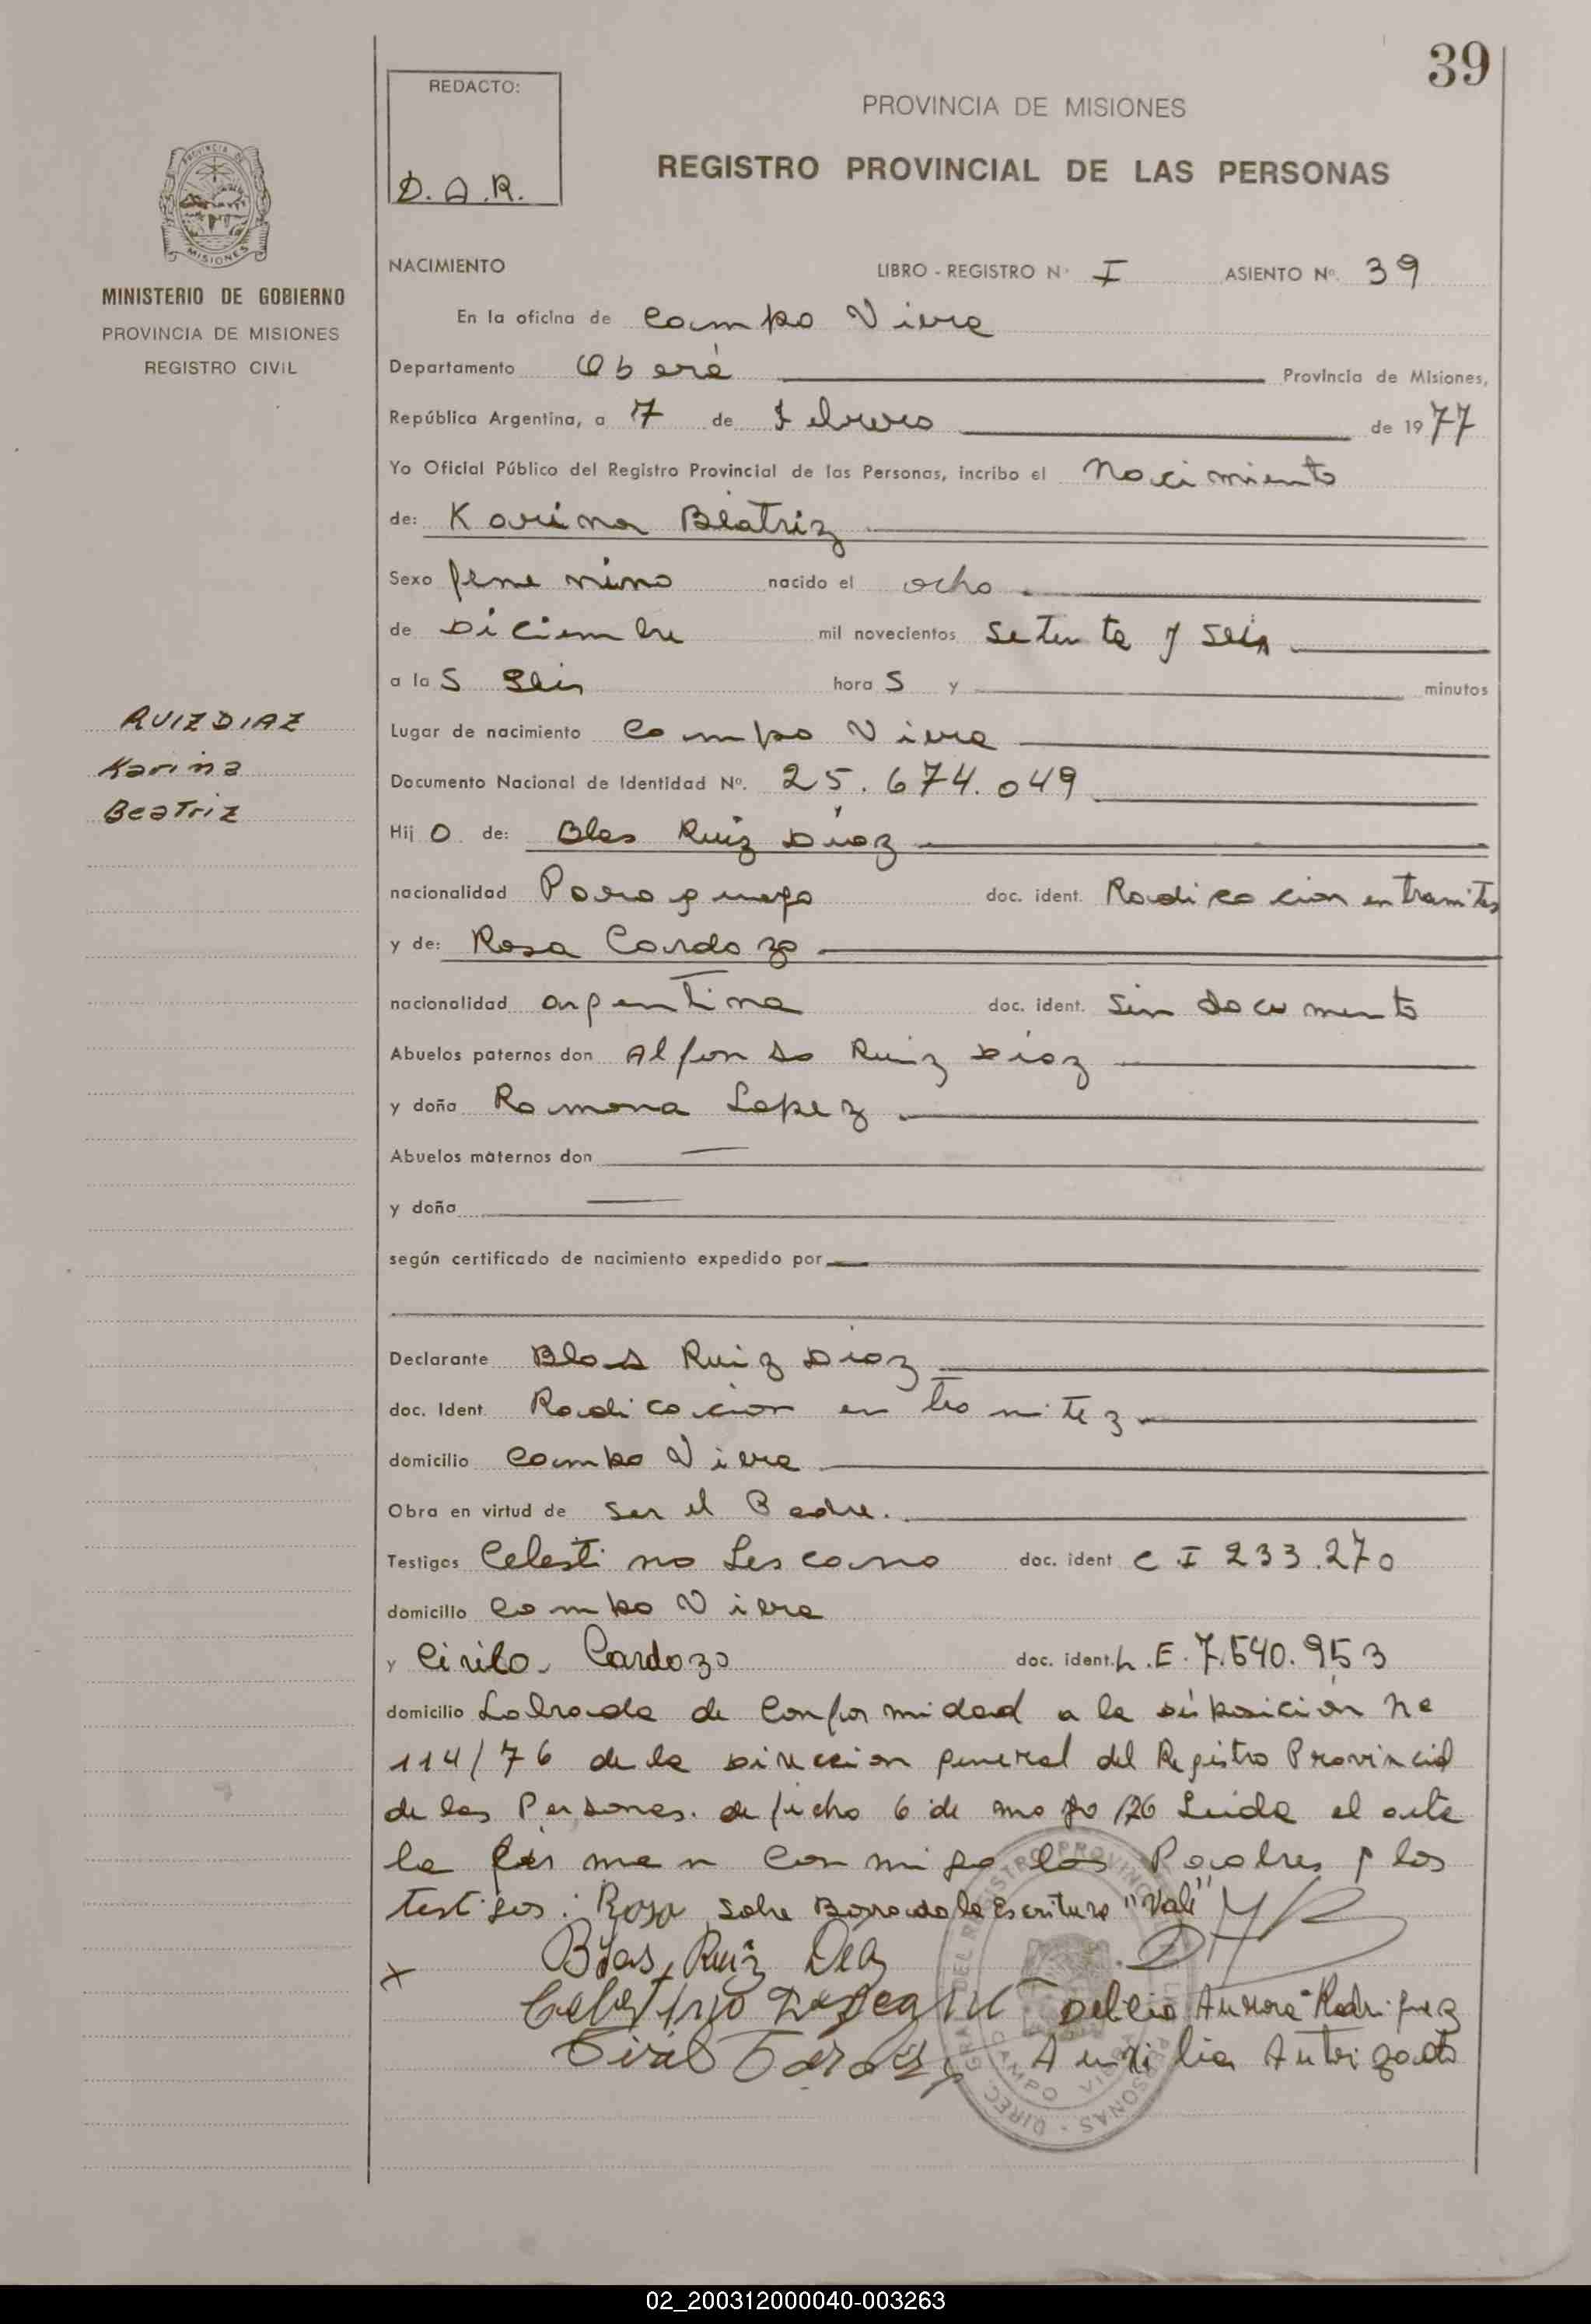 39
REDACTO:
D.A.R.
PROVINCIA DE MISIONES
REGISTRO PROVINCIAL DE LAS PERSONAS
PROVINCIA DE
MISIONES
MINISTERIO DE GOBIERNO
PROVINCIA DE MISIONES
REGISTRO CIVIL
NACIMIENTO LIBRO - REGISTRO Nº I ASIENTO Nº. 39
En la oficina de Campo Viera
Departamento Oberá Provincia de Misiones,
República Argentina, a 7 de Febrero de 1977
Yo Oficial Público del Registro Provincial de las Personas, incribo el Nacimiento
de: Karina Beatriz
Sexo femenino nacido el ocho
de Diciembre mil novecientos setenta y seis
a la S Seis hora S y minutos
RUIZ DIAZ
Karina
Beatriz
Lugar de nacimiento Campo Viera
Documento Nacional de Identidad Nº. 25.674.049
Hij O de: Blas Ruiz Díaz
nacionalidad Paraguayo doc. ident. Radicacion en tramites
y de: Rosa Cardozo
nacionalidad argentina doc. ident. Sin documento
Abuelos paternos don Alfonso Ruiz Díaz
y doña Ramona Lopez
Abuelos maternos don
y doña
según certificado de nacimiento expedido por
Declarante Blas Ruiz Díaz
doc. Ident. Radicacion en tramitez
domicilio Campo Viera
Obra en virtud de ser el Padre.
Testigos Celestino Lescano doc. ident C I 233.270
domicilio Campo Viera
y Cirilo Cardozo doc. ident. L.E. 7.540.953
domicilio Labrada de Conformidad a la disposición Nº
114/76 de la Direccion general del Registro Provincial
de las Personas. de fecha 6 de mayo /76 Leida el acta
la firman conmigo los Padres y los
testigos: Rosa sobre Borrado la Escritura "Vale"
X Blas Ruiz Dias
Celestino
Delcia Aurora Rodriguez
Auxilia Autorizada
DIREC. GRAL. DEL REGISTRO PROVINCIAL PERSONAS
CAMPO VIERA
02_200312000040-003263